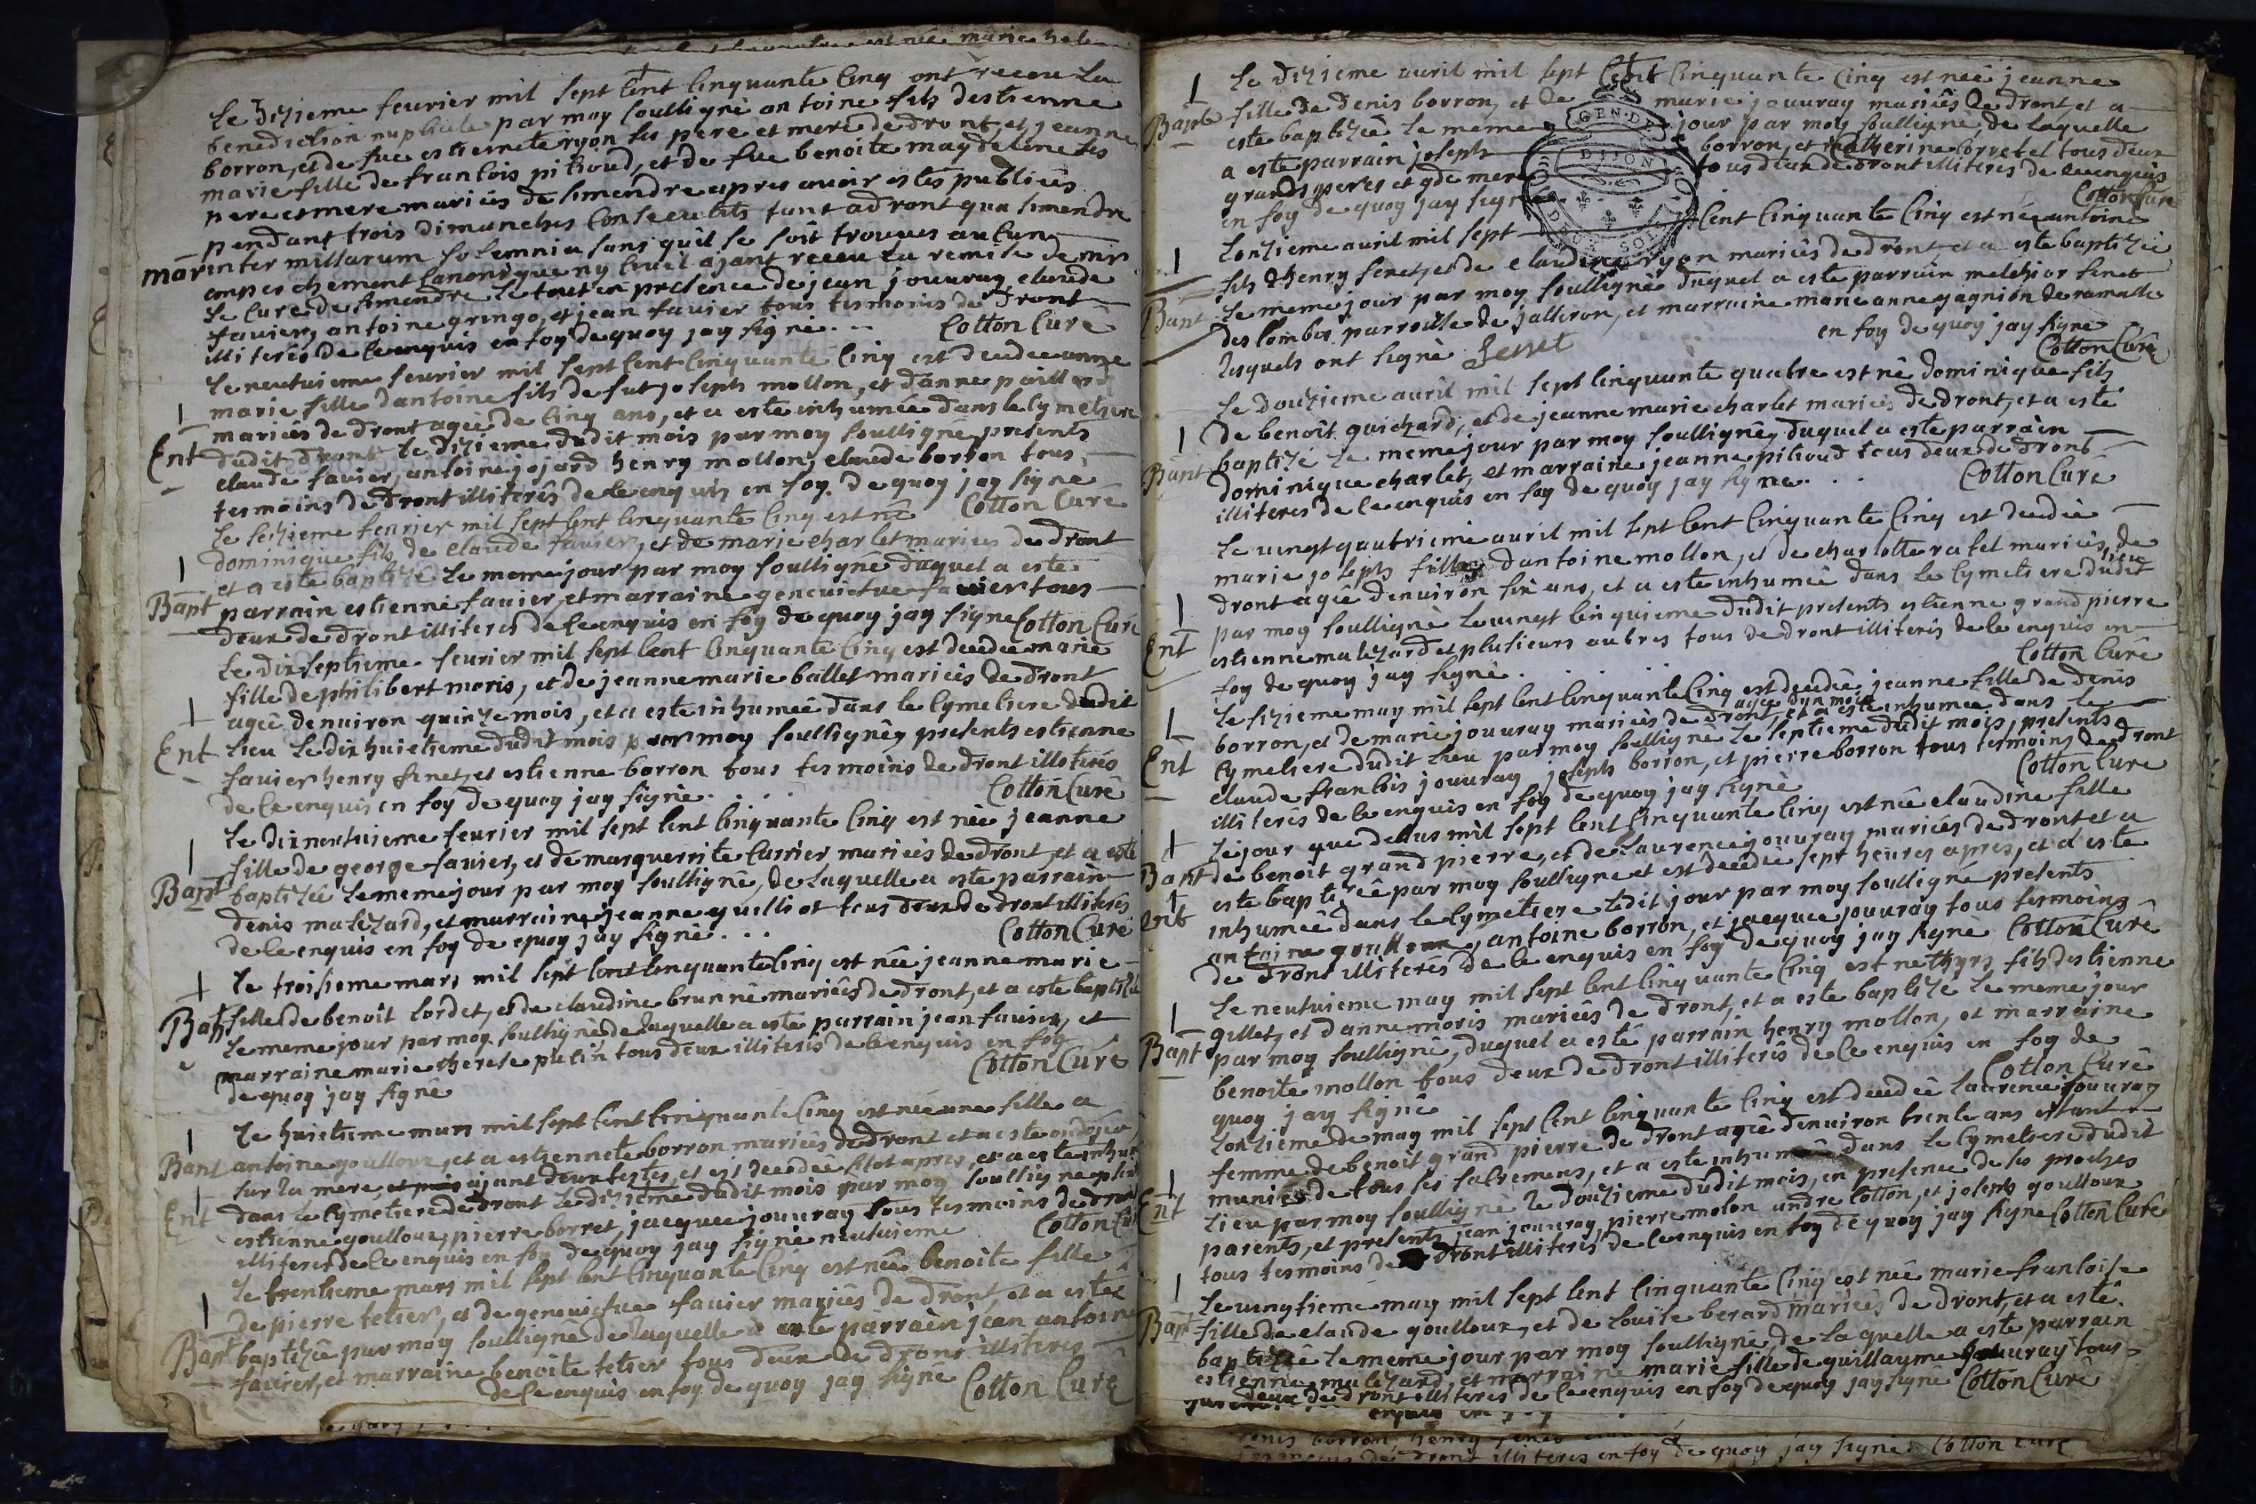 Le dizieme feurier mil sept Cent Cinquante Cinq ont receu La
benediction nuptiale par moy soussigné antoine fils destienne
borron, et de fue estiennete ryon ses pere et mere de dront, et jeanne
marie fille de francois pitioud, et de fue benoite maydelene ses
pere et mere mariés de simendre apres avoir estés publiés
pendant trois dimanches Consecutifs tant a dront qua simendre
mar inter missarum solemnia sans quil se soit trouvés aucun
empeschement Canonique ny Civil ajant receu La remise de mr
Le Curé de simendre Le tout en presence de jean jouuray, claude
fauier, antoine gringo, et jean fauier tous tesmoins de dront
illiterés de ce enquis en foy de quoy jay signé . . Cotton Curé
Le neufuieme feurier mil sept Cent Cinquante Cinq est decedee anne
marie fille dantoine fils de fut joseph mollon, et danne paillard
mariés de dront agée de Cinq ans, et a esté inhumée dans le Cymetiere
Ent dudit dront Le dizieme dudit mois par moy soussigné presents
claude fauier, antoine jojard henry mollon, claude borron tous
tesmoins de dront illiterés de ce enquis en foy de quoy jay signé
Cotton Curé
Le sezieme feurier mil sept Cent Cinquante Cinq est né
dominique fils de claude fauier, et de marie charlet mariés de dront
et a esté baptizé Le meme jour par moy soussigné duquel a esté
Bapt parrain estienne fauier, et marraine geneuiefue fauier tous
deux de dront illiterés de ce enquis en foy de quoy jay signé Cotton Curé
Le dix septieme feurier mil sept Cent Cinquante Cinq est decedee marie
fille de philibert moris, et de jeanne marie ballet mariés de dront
agée denuiron quinze mois, et a esté inhumée dans le Cymetiere dudit
Ent Lieu Le dix huictieme dudit mois par moy soussigné, presents estienne
fauier henry fenet, et estienne borron tous tesmoins de dront illiterés
de ce enquis en foy de quoy jay signé. . . . Cotton Curé
Le dix neufuieme feurier mil sept Cent Cinquante Cinq est née jeanne
fille de george fauier, et de marguerrite Currier mariés de dront, et a esté
Bapt baptizée Le meme jour par moy soussigné, de Laquelle a esté parrain
denis malezard, et marraine jeanne guilliot tous deux de dront illiterés
de ce enquis en foy de quoy jay signé . . . Cotton Curé
Le troisieme mars mil sept Cent Cinquante Cinq est née jeanne marie
Bap fille de benoit Cordet, et de claudine brunné mariés de dront, et a esté baptizée
Le meme jour par moy soussigné de Laquelle a esté parrain jean fauier, et
marraine marie therese putin tous deux illiterés de ce enquis en foy
de quoy jay signé Cotton Curé
Le huictieme mars mil sept Cent Cinquante Cinq est née une fille a
Bapt antoine goulloux, et a estiennete borron mariés de dront et a esté ondojée
sur La mere, ajant deux testes, et est decedée sitot apres, et a esté inhumée
Ent dans le Cymetiere de dront Le dizieme dudit mois par moy soussigné
estienne goulloux, pierre borret, jacques jouuray tous tesmoins de dront
illiterés de ce enquis en foy de quoy jay signé neufuieme Cotton Curé
Le trentieme mars mil sept Cent Cinquante Cinq est née benoite fille
de pierre tetier, et de geneuiefue fauier mariés de dront, et a esté
Bapt baptizée par moy soussigné de Laquelle a esté parrain jean antoine
fauier, et marraine benoite tetier tous deux de dront illiterés
de ce enquis en foy de quoy jay signé Cotton Curé
Le dizieme auril mil sept Cent Cinquante Cinq est née jeanne
Bapt fille de denis borron, et de marie jouuray mariés de dront, et a
esté baptizée Le meme jour par moy soussigné, de Laquelle
a esté parrain joseph borron, et Catherine Corretel tous deux
grands peres et gde mere tous deux de dront illiterés de ce enquis
en foy de quoy jay signé Cotton Curé
GEN. DE DIJON
Lonzieme auril mil sept Cent Cinquante Cinq est né antoine
fils dhenry fenet, et de claudine ryon mariés de dront et a esté baptizé
Bapt Le meme jour par moy soussigné duquel a esté parrain melchior fenet
des Combes parroisse de jasseron, et marraine marie anne gagnion de ramasse
Lesquels ont signé Fenet en foy de quoy jay signé
Cotton Curé
Le douzieme auril mil sept Cinquante quatre est né dominique fils
de benoit guichard, et de jeanne marie charlet mariés de dront, et a esté
baptizé Le meme jour par moy soussigné, duquel a esté parrain
Bapt dominique charlet, et marraine jeanne pitioud tous deux de dront
illiterés de ce enquis en foy de quoy jay signé . . . Cotton Curé
Le vingt quatrieme auril mil sept Cent Cinquante Cinq est decedée
marie joseph fille dantoine mollon, et de charlotte ratel mariés de
dront agée denuiron six ans, et a esté inhumée dans le Cymetiere dudit lieu
par moy soussigné Le vingt Cinquieme dudit presents estienne grand pierre
Ent estienne malezard et plusieurs autres tous de dront illiterés de ce enquis en
foy de quoy jay signé. Cotton Curé
Le sizieme may mil sept Cent Cinquante Cinq est decedée jeanne fille de denis
borron, et de marie jouuray mariés de dront, agée dun mois et a esté inhumée dans le
Ent Cymetiere dudit Lieu par moy soussigné Le septieme dudit mois, presents
claude francois jouuray joseph borron, et pierre borron tous tesmoins de dront
illiterés de ce enquis en foy de quoy jay signé Cotton Curé
Le jour que dessus mil sept Cent Cinquante Cinq est née claudine fille
Bapt de benoit grand pierre, et de Laurence jouuray mariés de dront et a
esté baptizée par moy soussigné et est decedée sept heures apres, et a esté
Ent inhumée dans le Cymetiere ledit jour par moy soussigné presents
antoine goulloux, antoine borron, et jacques jouuray tous tesmoins
de dront illiterés de ce enquis en foy de quoy jay signé Cotton Curé
Le neufuieme may mil sept Cent Cinquante Cinq est né thyrs fils destienne
gillet, et danne moris mariés de dront, et a esté baptizé Le meme jour
Bapt par moy soussigné, duquel a esté parrain henry mollon, et marraine
benoite mollon tous deux de dront illiterés de ce enquis en foy de
quoy jay signé Cotton Curé
Lonzieme de may mil sept Cent Cinquante Cinq est decedée Laurence jouuray
femme de benoit grand pierre de dront agée denuiron trente ans estant
munie de tous ses sacremens, et a esté inhumée dans le Cymetiere dudit
Ent Lieu par moy soussigné Le douzieme dudit mois, en presence de ses proches
parents, et presents jean jouuray, pierre molon andre Cotton, et joseph goulloux
tous tesmoins de dront illiterés de ce enquis en foy de quoy jay signé Cotton Curé
Le vingtieme may mil sept Cent Cinquante Cinq est née marie francoise
Bapt fille de claude goulloux, et de Louise berard mariés de dront, et a esté
baptizée Le meme jour par moy soussigné, de Laquelle a esté parrain
estienne malezard, et marraine marie fille de guillayme jouuray tous
deux de dront illiterés de ce enquis en foy de quoy jay signé Cotton Curé
denis borron, henry fenet
de dront illiterés en foy de quoy jay signé Cotton Curé